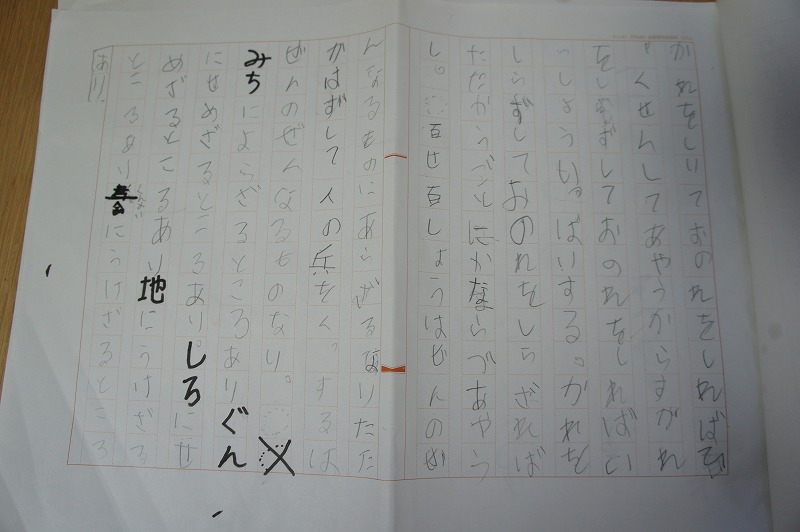 かれをしいておのれをしればひ
ゃくせんしてあやうからすがれ
をしらずしておのれをしればい
っしょういっぱいする。かれを
しらずしておのれをしらざれば
たたかうごとにかならづあやう
し。百せ百しょうはぜんのぜ
んなるものにあらざるなりたた
かはずして人の兵をくっするは
ぜんのぜんなるものなり。
みちによらざるところありぐん
にせめざるところあり。しろにせ
めざるところあり地にうけざる
ところあり
にうけざるところ
あり。